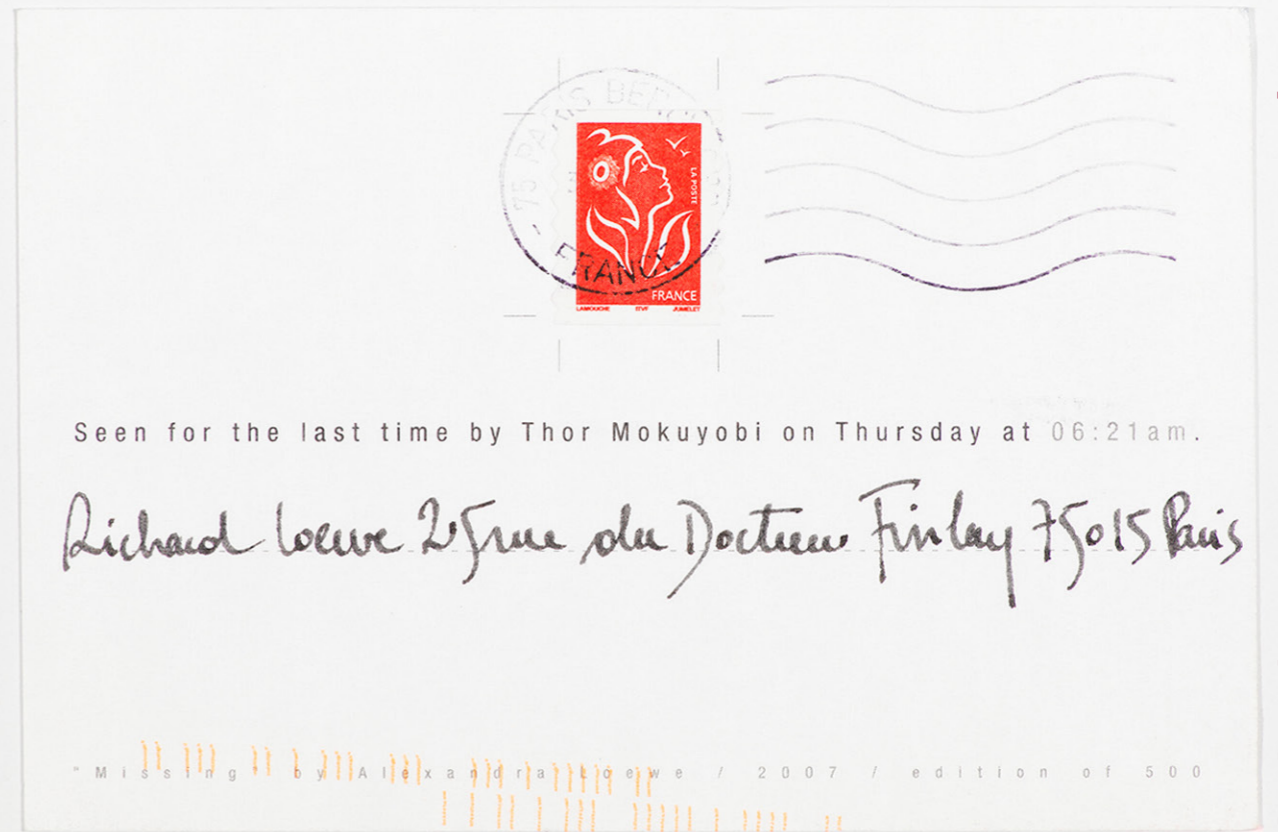 75 PARIS
FRANCE
LA POSTE
FRANCE
LAMOUCHE ITVF JUMELET
Seen for the last time by Thor Mokuyobi on Thursday at 06:21am.
Richard Loewe 25 rue du Docteur Finlay 75015 Paris
"Missing" by Alexandra Loewe / 2007 / edition of 500